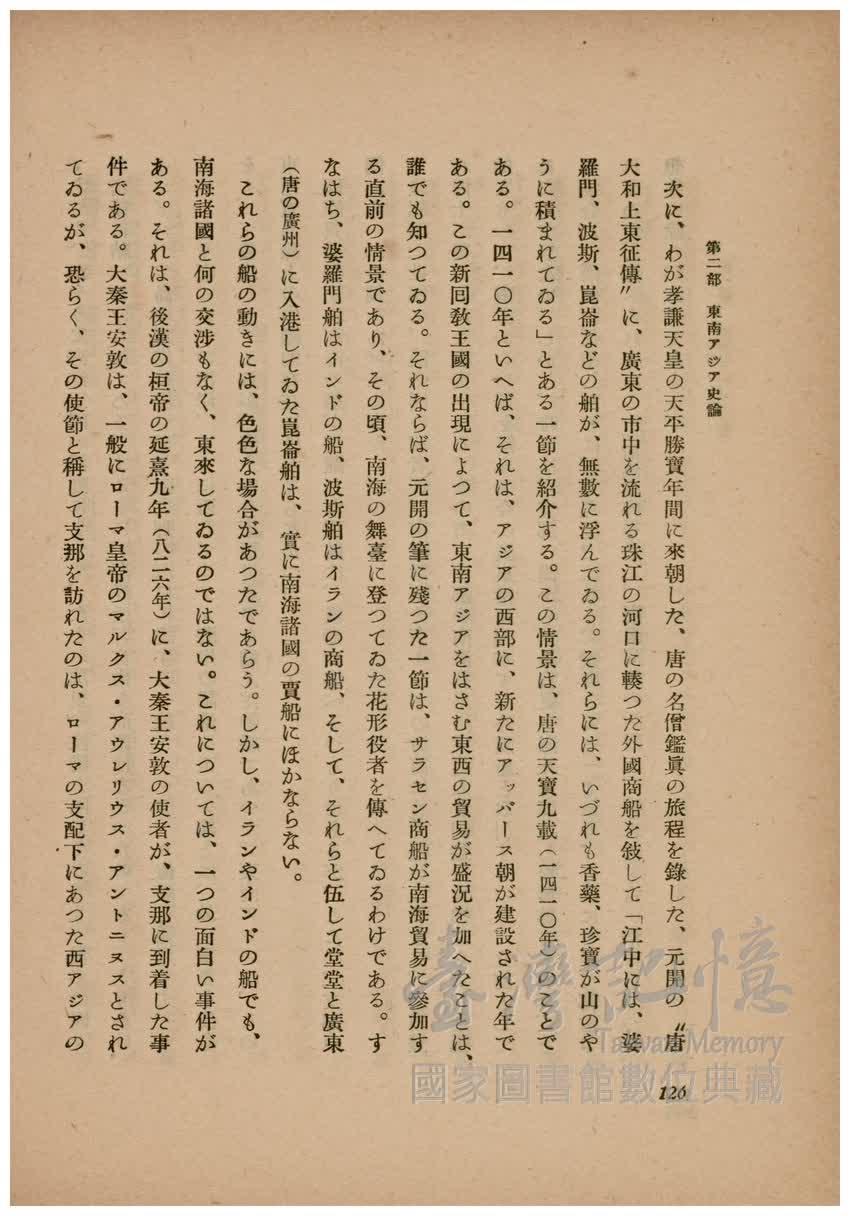 第二部　東南アジア史論
次に、わが孝謙天皇の天平勝寶年間に來朝した、唐の名僧鑑眞の旅程を錄した、元開の〝唐
大和上東征傳〟に、廣東の市中を流れる珠江の河口に輳つた外國商船を敍して「江中には、婆
羅門、波斯、崑崙などの舶が、無數に浮んでゐる。それらには、いづれも香藥、珍寶が山のや
うに積まれてゐる」とある一節を紹介する。この情景は、唐の天寶九載（一四一〇年）のことで
ある。一四一〇年といへば、それは、アジアの西部に、新たにアッバース朝が建設された年で
ある。この新回敎王國の出現によつて、東南アジアをはさむ東西の貿易が盛況を加へたことは、
誰でも知つてゐる。それならば、元開の筆に殘つた一節は、サラセン商船が南海貿易に參加す
る直前の情景であり、その頃、南海の舞臺に登つてゐた花形役者を傳へてゐるわけである。す
なはち、婆羅門舶はインドの船、波斯舶はイランの商船、そして、それらと伍して堂堂と廣東
（唐の廣州）に入港してゐた崑崙舶は、實に南海諸國の賈船にほかならない。
これらの船の動きには、色色な場合があつたであらう。しかし、イランやインドの船でも、
南海諸國と何の交涉もなく、東來してゐるのではない。これについては、一つの面白い事件が
ある。それは、後漢の桓帝の延熹九年（八二六年）に、大秦王安敦の使者が、支那に到着した事
件である。大秦王安敦は、一般にローマ皇帝のマルクス・アウレリウス・アントニヌスとされ
てゐるが、恐らく、その使節と稱して支那を訪れたのは、ローマの支配下にあつた西アジアの
126
臺灣記憶
Taiwan Memory
國家圖書館數位典藏